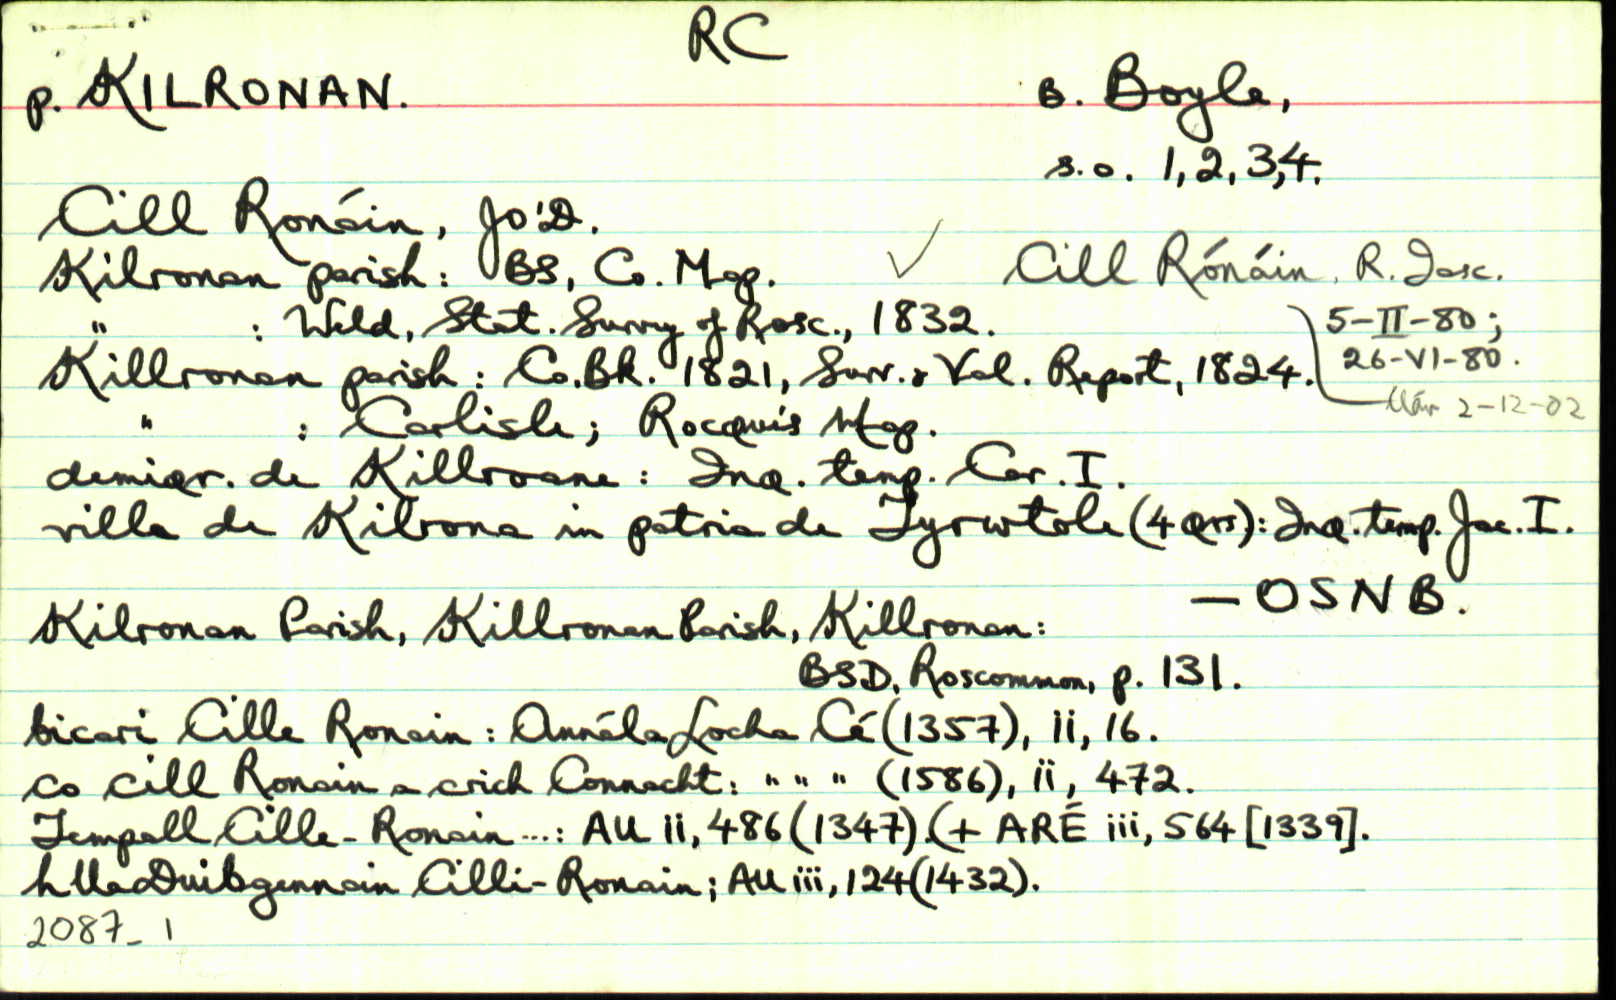 RC
p. KILRONAN.
B. Boyle,
s.o. 1,2,3,4.
Cill Ronáin, JO'D.
Kilronan parish: BS, Co. Map.
✓ Cill Rónáin, R. Iasc.
" : Weld, Stat. Survey of Rosc., 1832.
5-II-80;
Killronan parish: Co. Bk. 1821, Surv. & Val. Report, 1824.
26-VI-80.
2-12-02
" : Carlisle; Rocque's Map.
demiqr. de Killroane: Inq. temp. Car. I.
villa de Kilrona in patria de Tyrwtole (4 qrs): Inq. temp. Jac. I.
— OSNB.
Kilronan Parish, Killronan Parish, Killronan:
BSD, Roscommon, p. 131.
bicari Cille Ronain: Annála Locha Cé (1357), ii, 16.
co cill Ronain a crich Connacht: " " " (1586), ii, 472.
Tempall Cille-Ronain...: AU ii, 486 (1347).(+ ARÉ iii, 564 [1339].
h Ua Duibgennain Cilli-Ronain; AU iii, 124 (1432).
2087_1